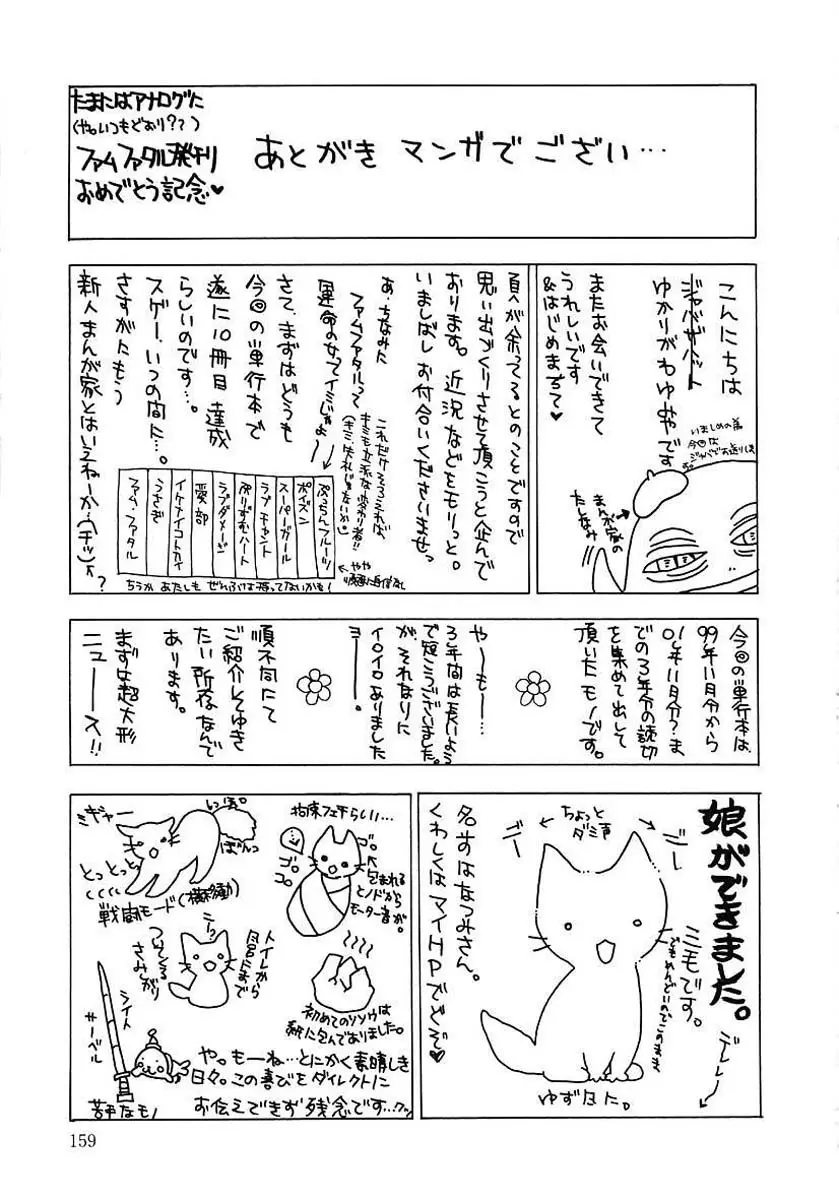 たまにはアナログに
(やっぱいつもどおり??)
ファムファタル発刊
おめでとう記念♥
あとがき マンガで ござい…
こんにちは
ジャバザハット
ゆかりがわゆみやです
またお会いできて
うれしいです
&はじめまちて♥
いましめの為
今回は
ジャバでお送りしま
す。
まんが家の
たしなみ
頁が余ってるとのことですので
思い出づくりさせて頂こうと企んで
おります。近況などをモリっと。
いましばしお付合いくださいませっ
あ、ちなみに
ファムファタルって
運命の女ってイミじゃよ
これだけそろえれば、
キミも立派な変わり者!!
(キミに失礼じゃないか)
さて、まずはどうも
今回の単行本で
遂に10冊目達成
らしいのです…。
スゲー、いつの間に…。
さすがにもう
新人まんが家とはいえねーか…(チッ)
?
ぷっちんフルーツ
ポイズン
スーパーガール
ラブチャント
ぷりずむハート
ラブダメージ
愛部
イケナイコトカイ
うさぎ
ファム・ファタル
やや
順番に自信なし
ちうか あたしも ぜんぶは持ってないかも!
今回の単行本は、
99年11月分から
01年11月分?ま
での3年分の読切
を集めて出して
頂いたモノです。
や〜も〜…
3年間は長いよう
で短こうございました。
が、それなりに
イロイロありました
ヨー…
順不同にて
ご紹介してゆき
たい所存なんで
あります。
まずは超大形
ニュース!!
娘ができました。
三毛です。
でもめんどいのでこのまま
デレレー
ちょっと
ダミ声
ごー
ごー
名まえはなつみさん。
くわしくはマイHPでどぞ♥
ゆず日に。
ミギャー
しっぽ。
ぼんっ
とっとっ
戦闘モード(横移動)
拘束フェチらしい…
ゴロ
ゴロ
包まれる
とノドから
モーター音が。
トイレから
風呂まで
つけてくる
さみしがり
初めてのソソウは
紙に包んでありました。
シイト
サーベル
苦手なモノ
や。もーね…とにかく素晴しき
日々。この喜びをダイレクトに
お伝えできず残念です…クッ
159